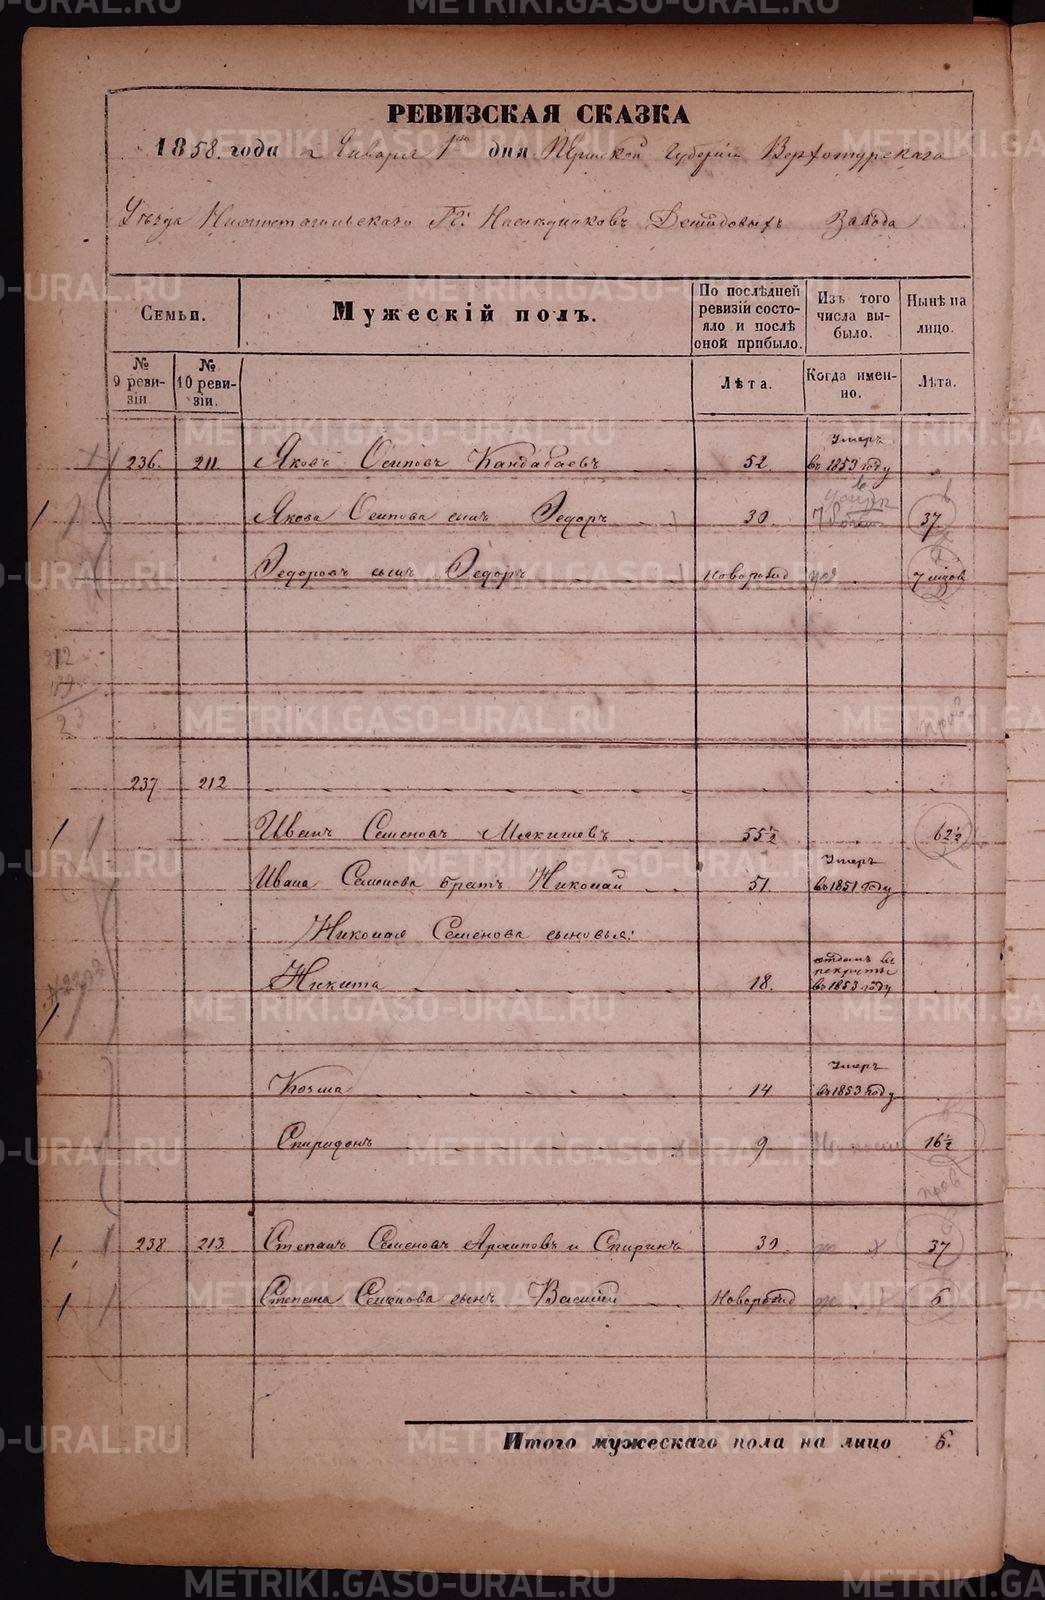 РЕВИЗСКАЯ СКАЗКА
1858 года Января 1го дня Пермской губернии Верхотурскаго
Уѣзда Нижнетагильскаго Гг: Наслѣдниковъ Демидовыхъ Завода
Семьи.
Мужескій полъ.
По послѣдней ревизіи состояло и послѣ оной прибыло.
Изъ того числа выбыло.
Нынѣ на лицо.
№ 9 ревизіи.
№ 10 ревизіи.
Лѣта.
Когда именно.
Лѣта.
236. 211 Яковъ Осиповъ Кандабаевъ 52. Умеръ въ 1859 году
Якова Осипова сынъ Ѳедоръ 30. 37.
Ѳедоровъ сынъ Ѳедоръ Новорожд 7 мцов
312
23
пров
237 212
Иванъ Семеновъ Мякишевъ 55½ 62½
Ивана Семенова братъ Николай 51. Умеръ въ 1851 году
Николая Семенова сыновья:
Никита 18. отданъ въ рекруты въ 1853 году
Козма 14 Умеръ въ 1853 году
Спиридонъ 9 16½
пров
238 213. Степанъ Семеновъ Архиповъ и Спиринъ 30. 37
Степана Семенова сынъ Василій Новорожд 6.
Итого мужескаго пола на лицо 6.
METRIKI.GASO-URAL.RU